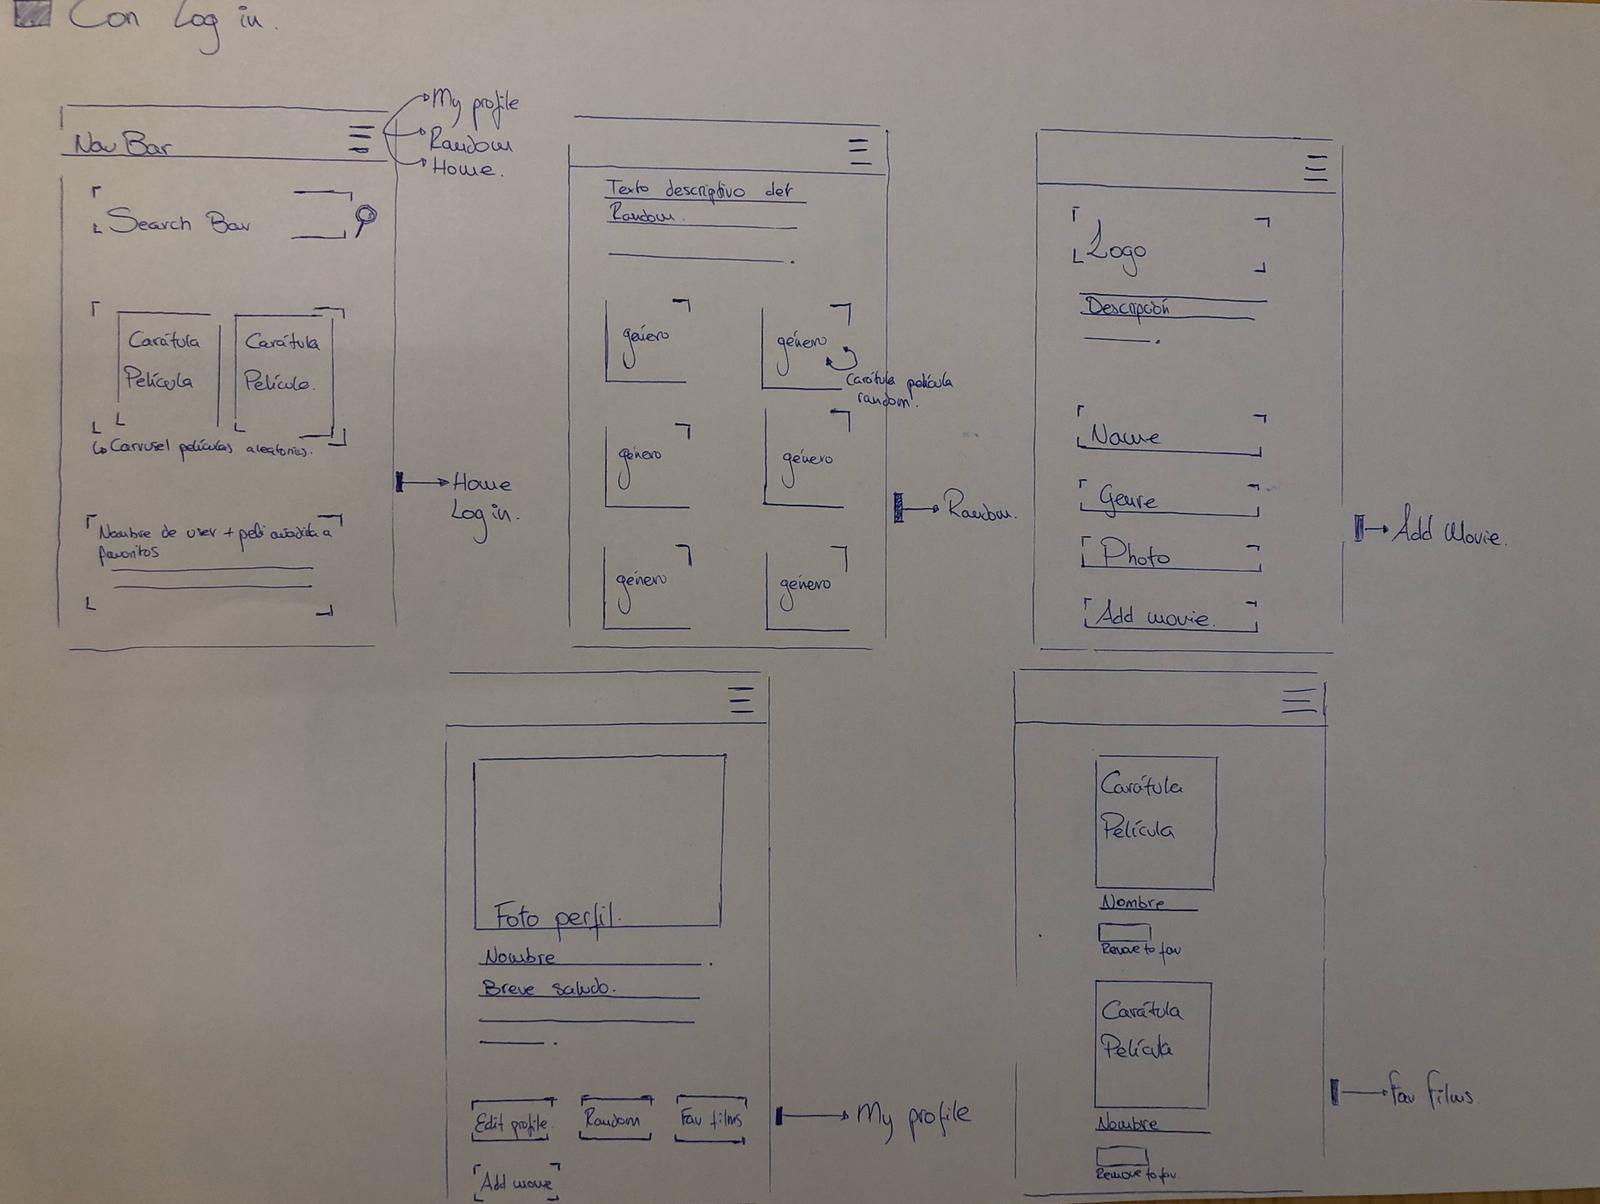 Con Log in.
Nav Bar
My profile
Random
Home.
Search Bar
Carátula
Película
Carátula
Película.
Carrusel películas aleatorias.
Nombre de user + peli añadida a
favoritos
Home
Log in.
Texto descriptivo del
Random.
género
género
Carátula película
random.
género
género
género
género
Random.
Logo
Descripción
Name
Genre
Photo
Add movie.
Add Movie.
Foto perfil.
Nombre
Breve saludo.
Edit profile.
Random
Fav films
Add movie
My profile
Carátula
Película
Nombre
Remove to fav
Carátula
Película
Nombre
Remove to fav
Fav Films.